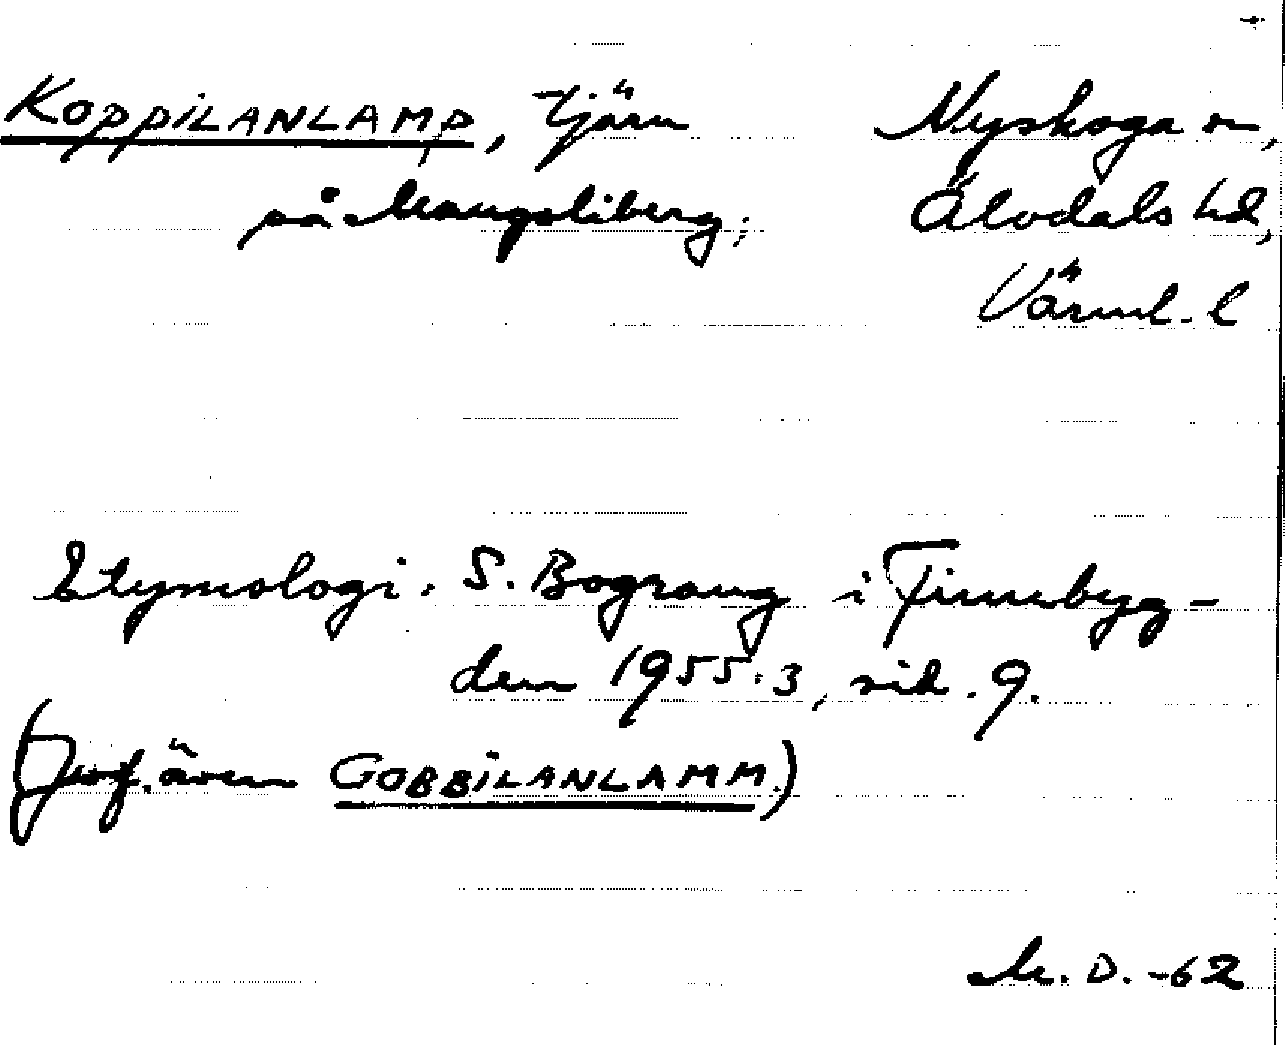 KOPPILANLAMP, tjärn Nyskoga sn,
på Mangsliberg; Älvdals hd,
Värml. l
Etymologi: S. Bograng i Finnebyg-
den 1955:3, sid. 9.
(Jmf. även GOBBILANLAMM.)
M. D. -62